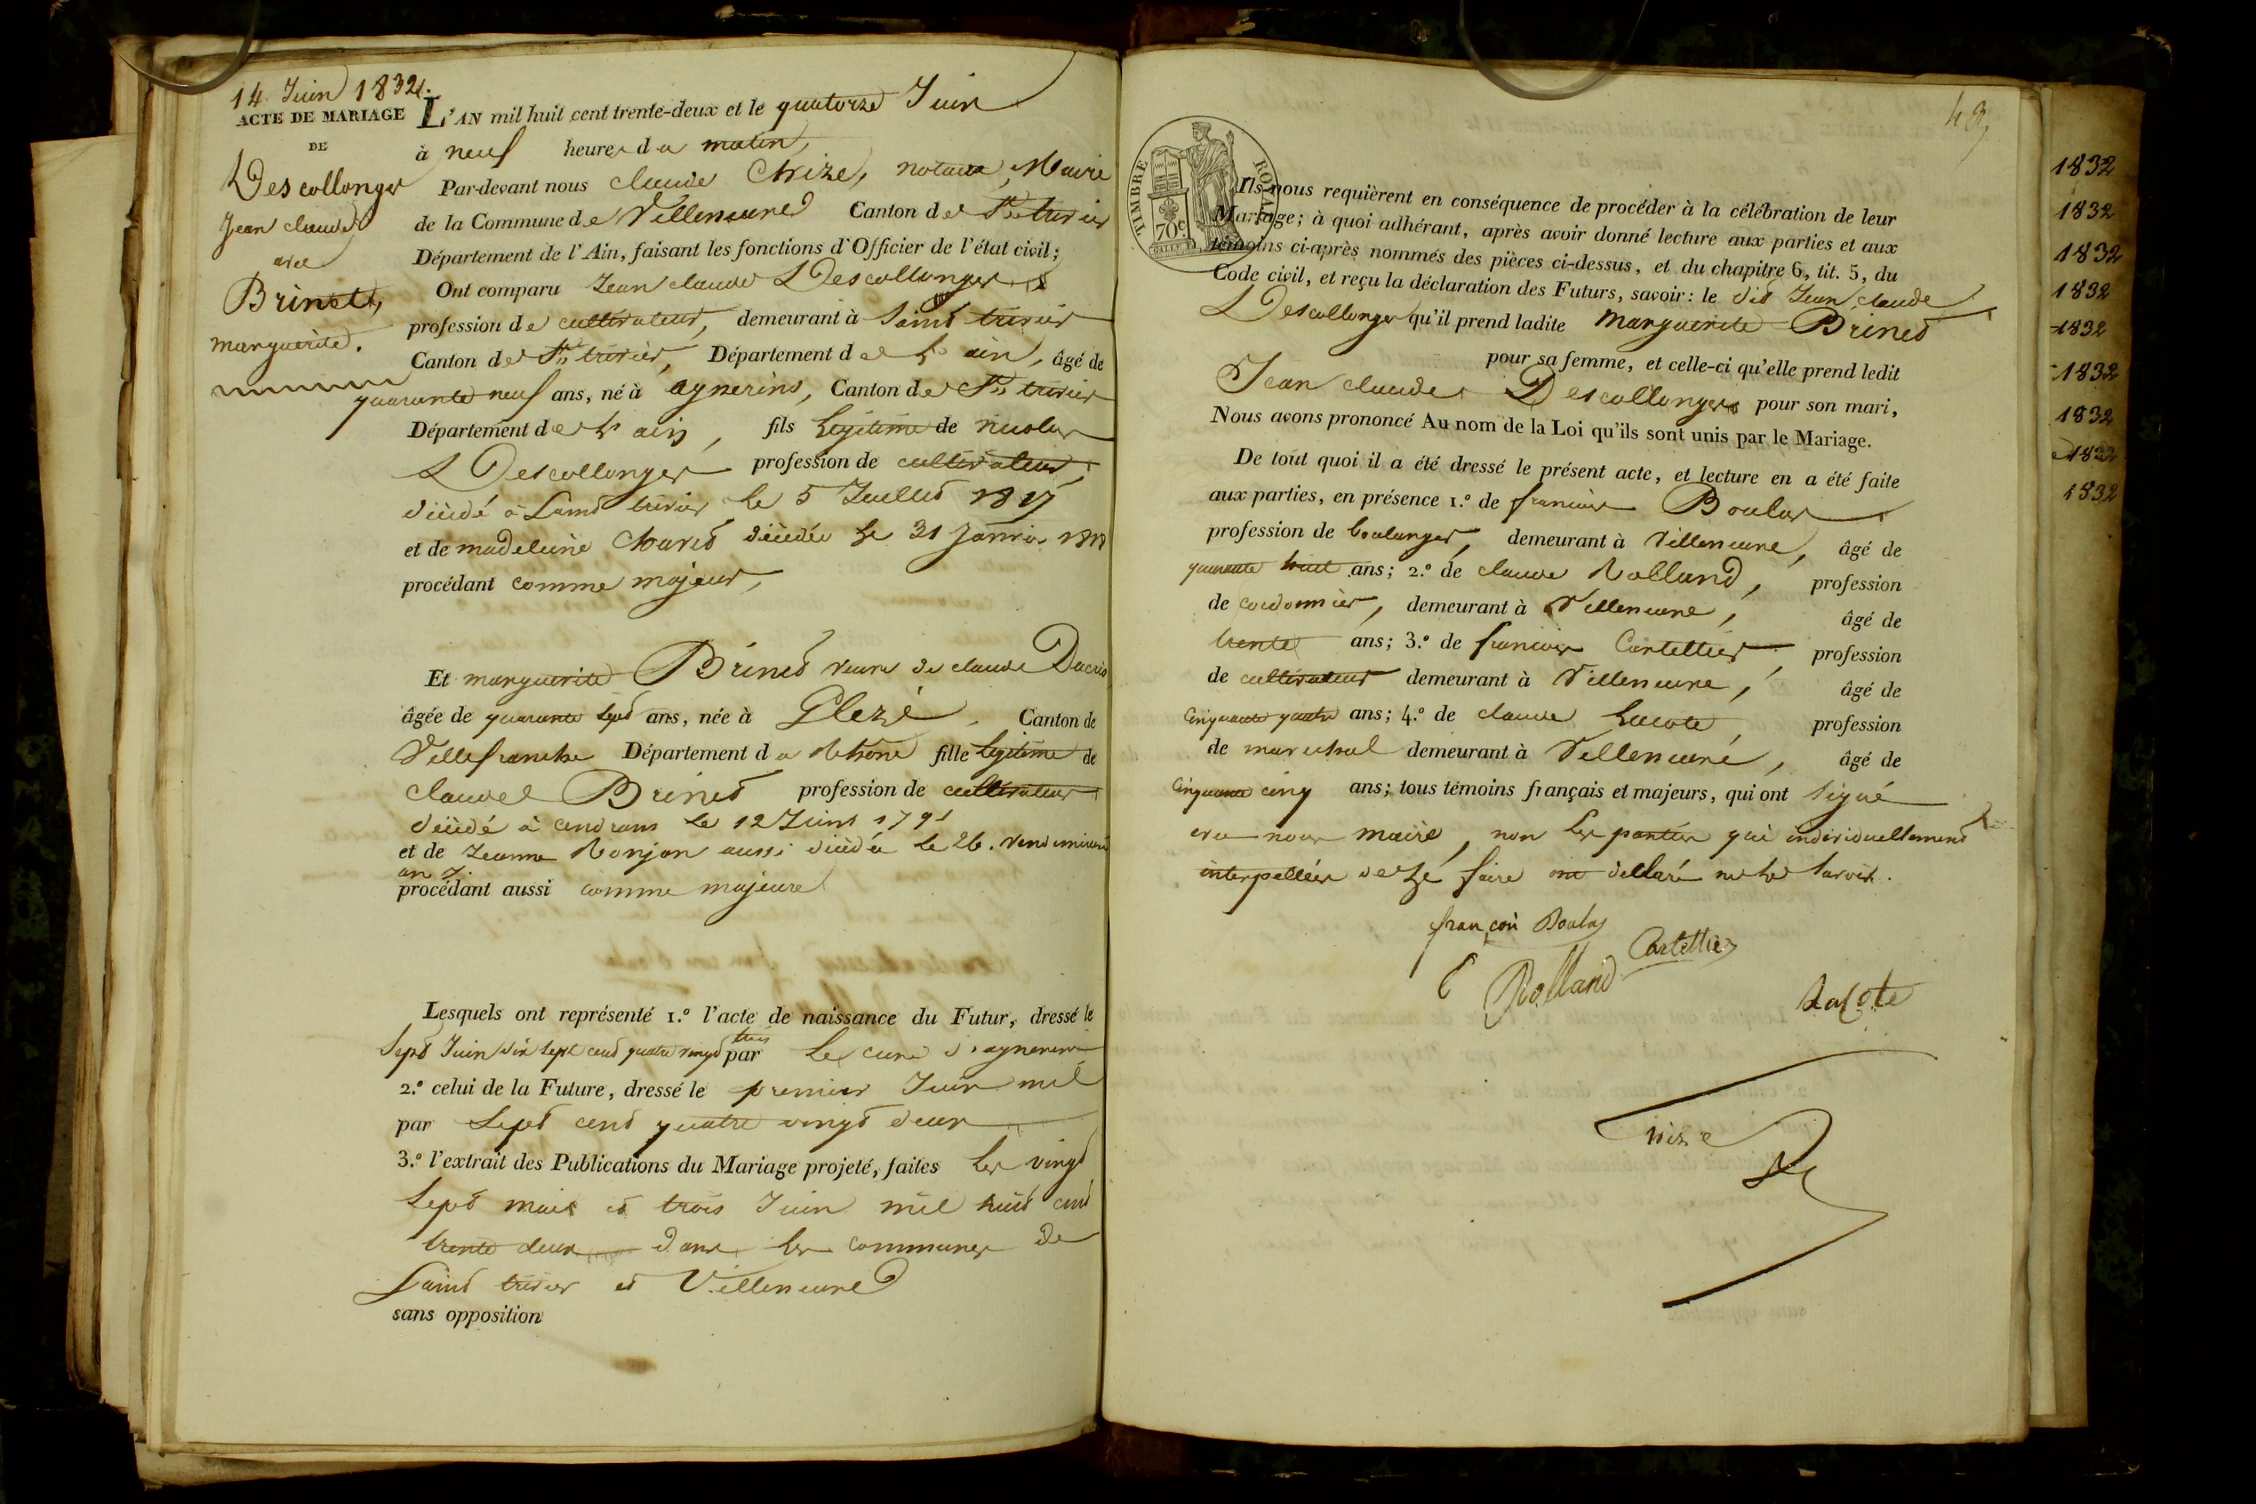 14 Juin 1832.
ACTE DE MARIAGE
DE
Descollonges
Jean claude
avec
Brinet,
marguerite.
L'AN mil huit cent trente-deux et le quatorze Juin
à neuf heures du matin,
Par-devant nous claude Chize, notaire, Maire
de la Commune de Villeneuve Canton de St trivier
Département de l'Ain, faisant les fonctions d'Officier de l'état civil;
Ont comparu Jean claude Descollonges
profession de cultivateur, demeurant à Saint trivier
Canton de St trivier, Département de l'ain, âgé de
quarante neuf ans, né à aynerins, Canton de St trivier
Département de l'ain, fils légitime de nicolas
Descollonges profession de cultivateur,
décédé à Saint trivier le 5 Juillet 1817
et de madeleine décédée le 31 Janvier
procédant comme majeur,
Et marguerite Brinet veuve de claude
âgée de quarante sept ans, née à Glezé, Canton de
Villefranche Département du Rhône fille légitime de
claude Brinet profession de cultivateur
décédé à cendrans le 12 Juin 1791
et de Jeanne Ronjon aussi décédée le 26. vendemiaire
an 7.
procédant aussi comme majeure
Lesquels ont représenté 1.º l'acte de naissance du Futur, dressé le
Sept Juin dix sept cent quatre vingt trois par le curé d'aynerins
2.º celui de la Future, dressé le premier Juin mil
par Sept cent quatre vingt deux
3.º l'extrait des Publications du Mariage projeté, faites les vingt
Sept mai et trois Juin mil huit cent
trente deux dans les communes de
Saint trivier et Villeneuve
sans opposition
TIMBRE ROYAL
70c.
Ils nous requièrent en conséquence de procéder à la célébration de leur
Mariage; à quoi adhérant, après avoir donné lecture aux parties et aux
témoins ci-après nommés des pièces ci-dessus, et du chapitre 6, tit. 5, du
Code civil, et reçu la déclaration des Futurs, savoir: le dit Jean claude
Descollonges qu'il prend ladite Marguerite Brinet
pour sa femme, et celle-ci qu'elle prend ledit
Jean claude Descollonges pour son mari,
Nous avons prononcé Au nom de la Loi qu'ils sont unis par le Mariage.
De tout quoi il a été dressé le présent acte, et lecture en a été faite
aux parties, en présence 1.º de francois Boulas
profession de boulanger, demeurant à Villeneuve, âgé de
quarante huit ans; 2.º de claude Rolland, profession
de cordonnier, demeurant à Villeneuve, âgé de
trente ans; 3.º de francois Cartellier, profession
de cultivateur demeurant à Villeneuve, âgé de
Cinquante quatre ans; 4.º de claude Lacote, profession
de marechal demeurant à Villeneuve, âgé de
Cinquante cinq ans; tous témoins français et majeurs, qui ont signé
avec nous maire, non les parties qui individuellement
interpellées de le faire ont déclaré ne le savoir.
françoi Boulas
Cartellier
C Rolland
LaCote
Chize
1832
1832
1832
1832
1832
1832
1832
1832
1832